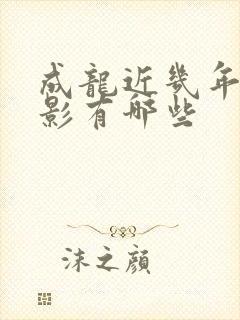 成龍近幾年
影有哪些
沫之顔